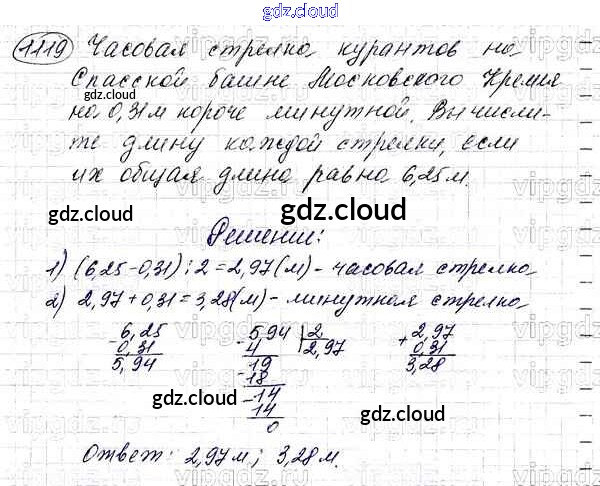 gdz.cloud
1119 Часовая стрелка курантов на
Спасской башне Московского Кремля
gdz.cloud
на 0,31м короче минутной. Вычисли-
те длину каждой стрелки, если
их общая длина равна 6,25м.
gdz.cloud
gdz.cloud
Решение:
1) (6,25-0,31):2=2,97(м)-часовая стрелка
2) 2,97+0,31=3,28(м)-минутная стрелка
-6,25 -5,94|2 +2,97
0,31 4 2,97 0,31
5,94 -19 3,28
18
-14
14
0
gdz.cloud
gdz.cloud
Ответ: 2,97м; 3,28м.
gdz.cloud